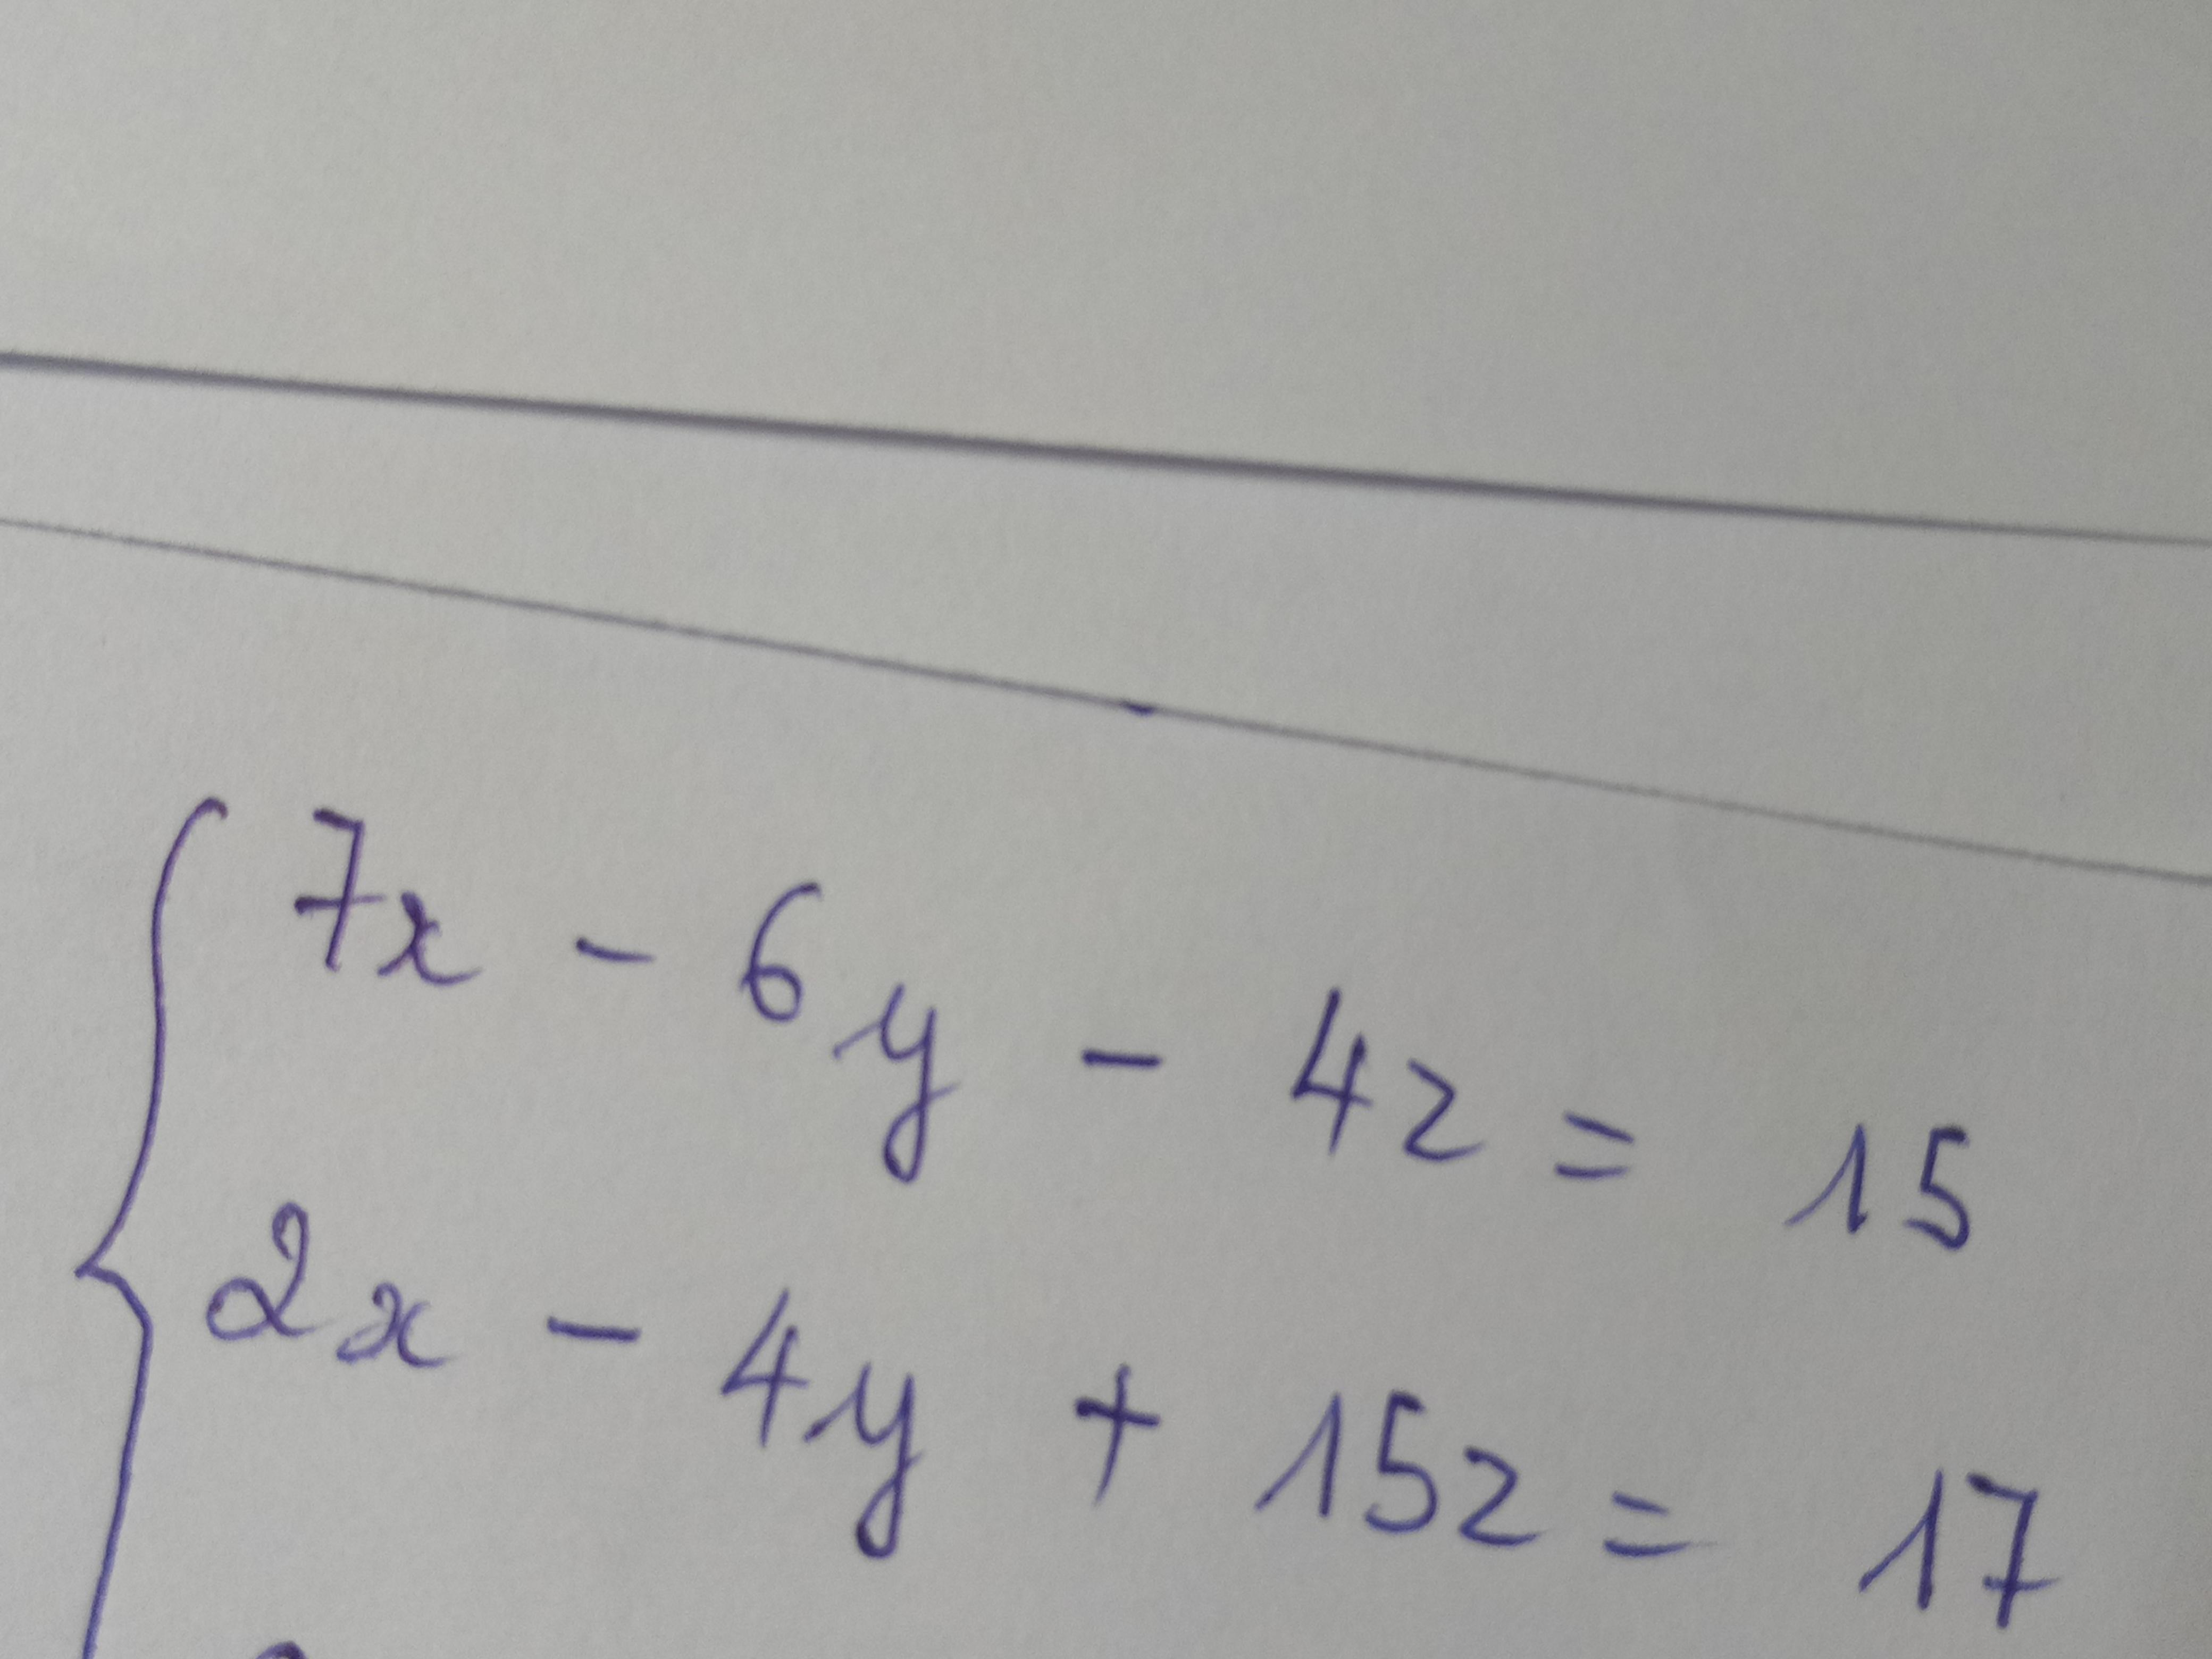 7x - 6y - 4z = 15
2x - 4y + 15z = 17